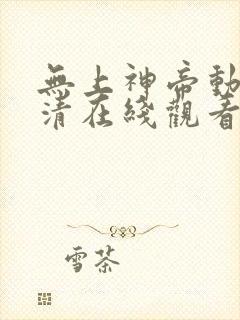 無上神帝動
清在綫觀看
雪茶